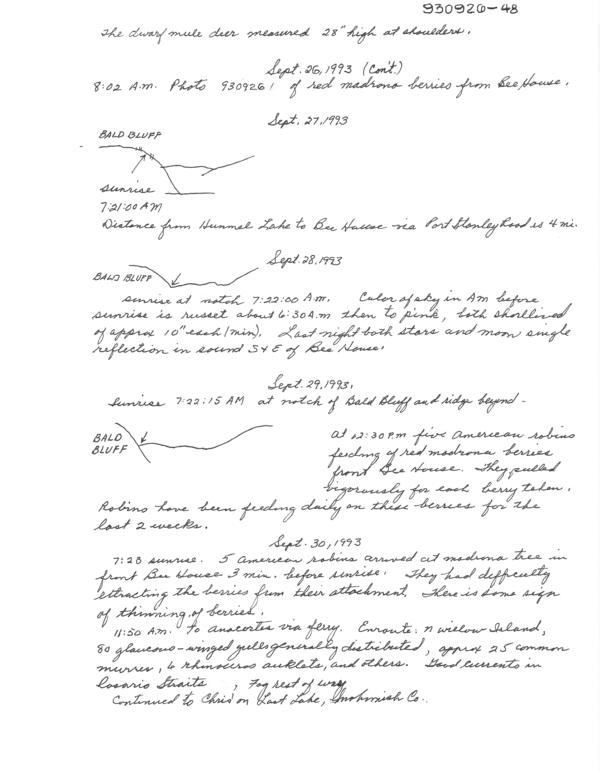 930920-48
The dwarf mule deer measured 28" high at shoulders.
Sept. 26, 1993 (Con't.)
8:02 A.M. Photo 930926 1 of red madrona berries from Bee House.
Sept. 27, 1993
BALD BLUFF
sunrise
7:21:00 AM
Distance from Hummel Lake to Bee House via Port Stanley Road is 4 mi.
Sept. 28, 1993
BALD BLUFF
sunrise at notch 7:22:00 A.m. Color of sky in Am before
sunrise is russet about 6:30 A.m. then to pink, both shortlived
of approx 10" each (min). Last night both stars and moon single
reflection in sound S & E of Bee House.
Sept. 29, 1993.
Sunrise 7:22:15 AM at notch of Bald Bluff and ridge beyond -
BALD
BLUFF
at 12:30 P.m five American robins
feeding of red madrona berries
front Bee House. They pulled
vigorously for each berry taken.
Robins have been feeding daily on these berries for the
last 2 weeks.
Sept. 30, 1993
7:23 sunrise. 5 American robins arrived at madrona tree in
front Bee House 3 min. before sunrise. They had difficulty
extracting the berries from their attachment. There is some sign
of thinning of berries.
11:50 A.m. To Anacortes via ferry. Enroute: n Willow Island,
80 glaucous-winged gulls generally distributed, approx 25 common
murres, 6 rhinoceros auklets, and others. Good currents in
Rosario Straits, Fog rest of way
Continued to Chris' on Lost Lake, Snohomish Co.